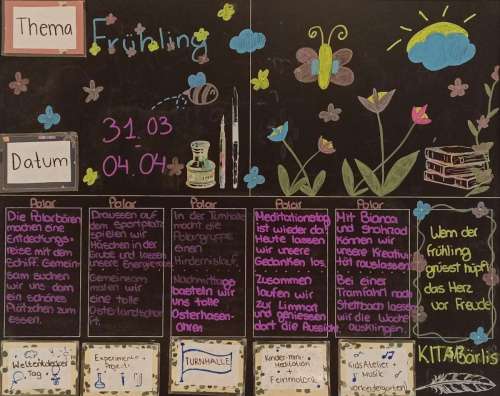 Thema
Frühling
31.03
Datum
04.04
Polar
Die Polarbären
machen eine
Entdeckungs-
reise mit dem
Schiff. Gemein-
sam suchen
wir uns dann
ein schönes
Plätzchen zum
essen.
Weltentdecker
Tag
Polar
Draussen auf
dem Sportplatz
spielen wir
Häschen in der
Grube und lassen
unsere Energie
Gemeinsam
malen wir
eine tolle
Experimente
Projekt
Polar
In der Turnhalle
macht die
Polargruppe
einen
Hindernislauf.
Nachmittag
basteln wir
uns tolle
Osterhasen-
ohren
TURNHALLE
Polar
Meditationstag
ist wieder da!
Heute lassen
wir unsere
Gedanken los.
Zusammen
laufen wir
zur Limmat
und geniessen
dort die Aussicht.
Kinder-mini-
Meditation
+
Feinmotorik
Polar
Mit Bianca
und Shahrzad
können wir
unsere Kreativi-
tät rauslassen.
Bei einer
Tramfahrt nach
Stettbach lassen
wir die Woche
ausklingen.
Kids Atelier
+ Musik
Vorkindergarten
Wenn der
frühling
grüsst hüpft
das Herz
vor Freude
KITABärlis